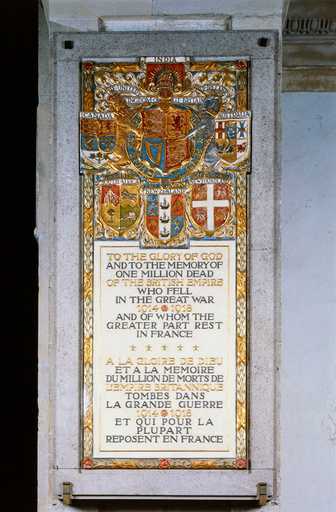 INDIA
UNITED
KINGDOM OF Gᵀ BRITAIN
CANADA
AUSTRALIA
SOUTH AFRICA
NEWFOUNDLAND
NEW ZEALAND
TO THE GLORY OF GOD
AND TO THE MEMORY OF
ONE MILLION DEAD
OF THE BRITISH EMPIRE
WHO FELL
IN THE GREAT WAR
1914 1918
AND OF WHOM THE
GREATER PART REST
IN FRANCE
A LA GLOIRE DE DIEU
ET A LA MEMOIRE
DU MILLION DE MORTS DE
L'EMPIRE BRITANNIQUE
TOMBES DANS
LA GRANDE GUERRE
1914 1918
ET QUI POUR LA
PLUPART
REPOSENT EN FRANCE